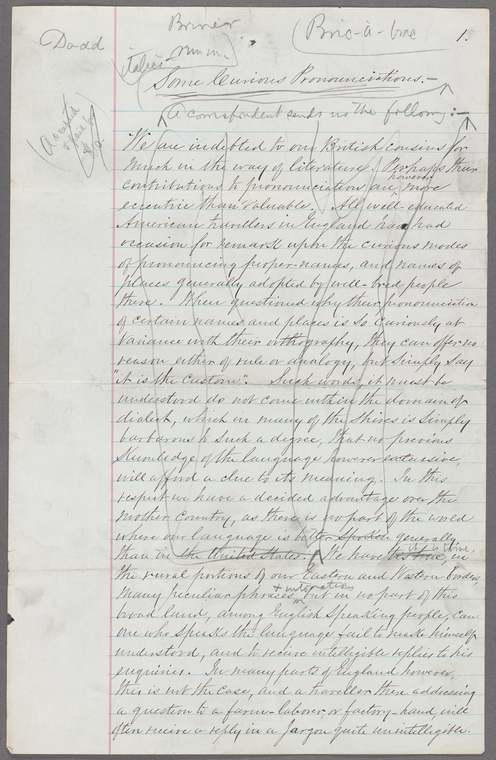 Dodd
Bric-à-brac
1.
italics
Some Curious Pronounciations.—
A correspondent sends us the following:—
We are indebted to our British cousins for
much in the way of literature. Perhaps their
contributions to pronounciations are however more
eccentric than valuable. All well-educated
American travellers in England have had
occasion for remark upon the curious modes
of pronouncing proper-names, and names of
places generally adopted by well-bred people
there. When questioned why their pronounciation
of certain names and places is so curiously at
variance with their orthography, they can offer no
reason either of rule or analogy, but simply say
"it is the custom". Such words, it must be
understood do not come within the domain of
dialect, which in many of the Shires is simply
barbarous to such a degree, that no previous
Knowledge of the language however extensive,
will afford a clue to its meaning. In this
respect we have a decided advantage over the
mother Country, as there is no part of the world
where our language is better spoken generally
than in the United States. We have it is true, in
the rural portions of our Eastern and Western borders,
many peculiar phrases + intonations, but in no part of this
broad land, among English speaking people, can
one who speaks the language fail to make himself
understood, and to receive intelligible replies to his
enquiries. In many parts of England however,
this is not the case, and a traveller there addressing
a question to a farm-laborer or factory-hand, will
often receive a reply in a jargon quite unintelligible.